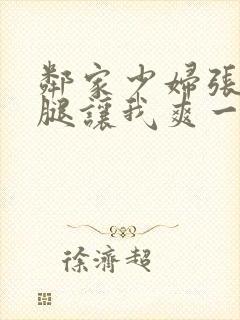 鄰家少婦張
腿讓我爽一
徐濟超